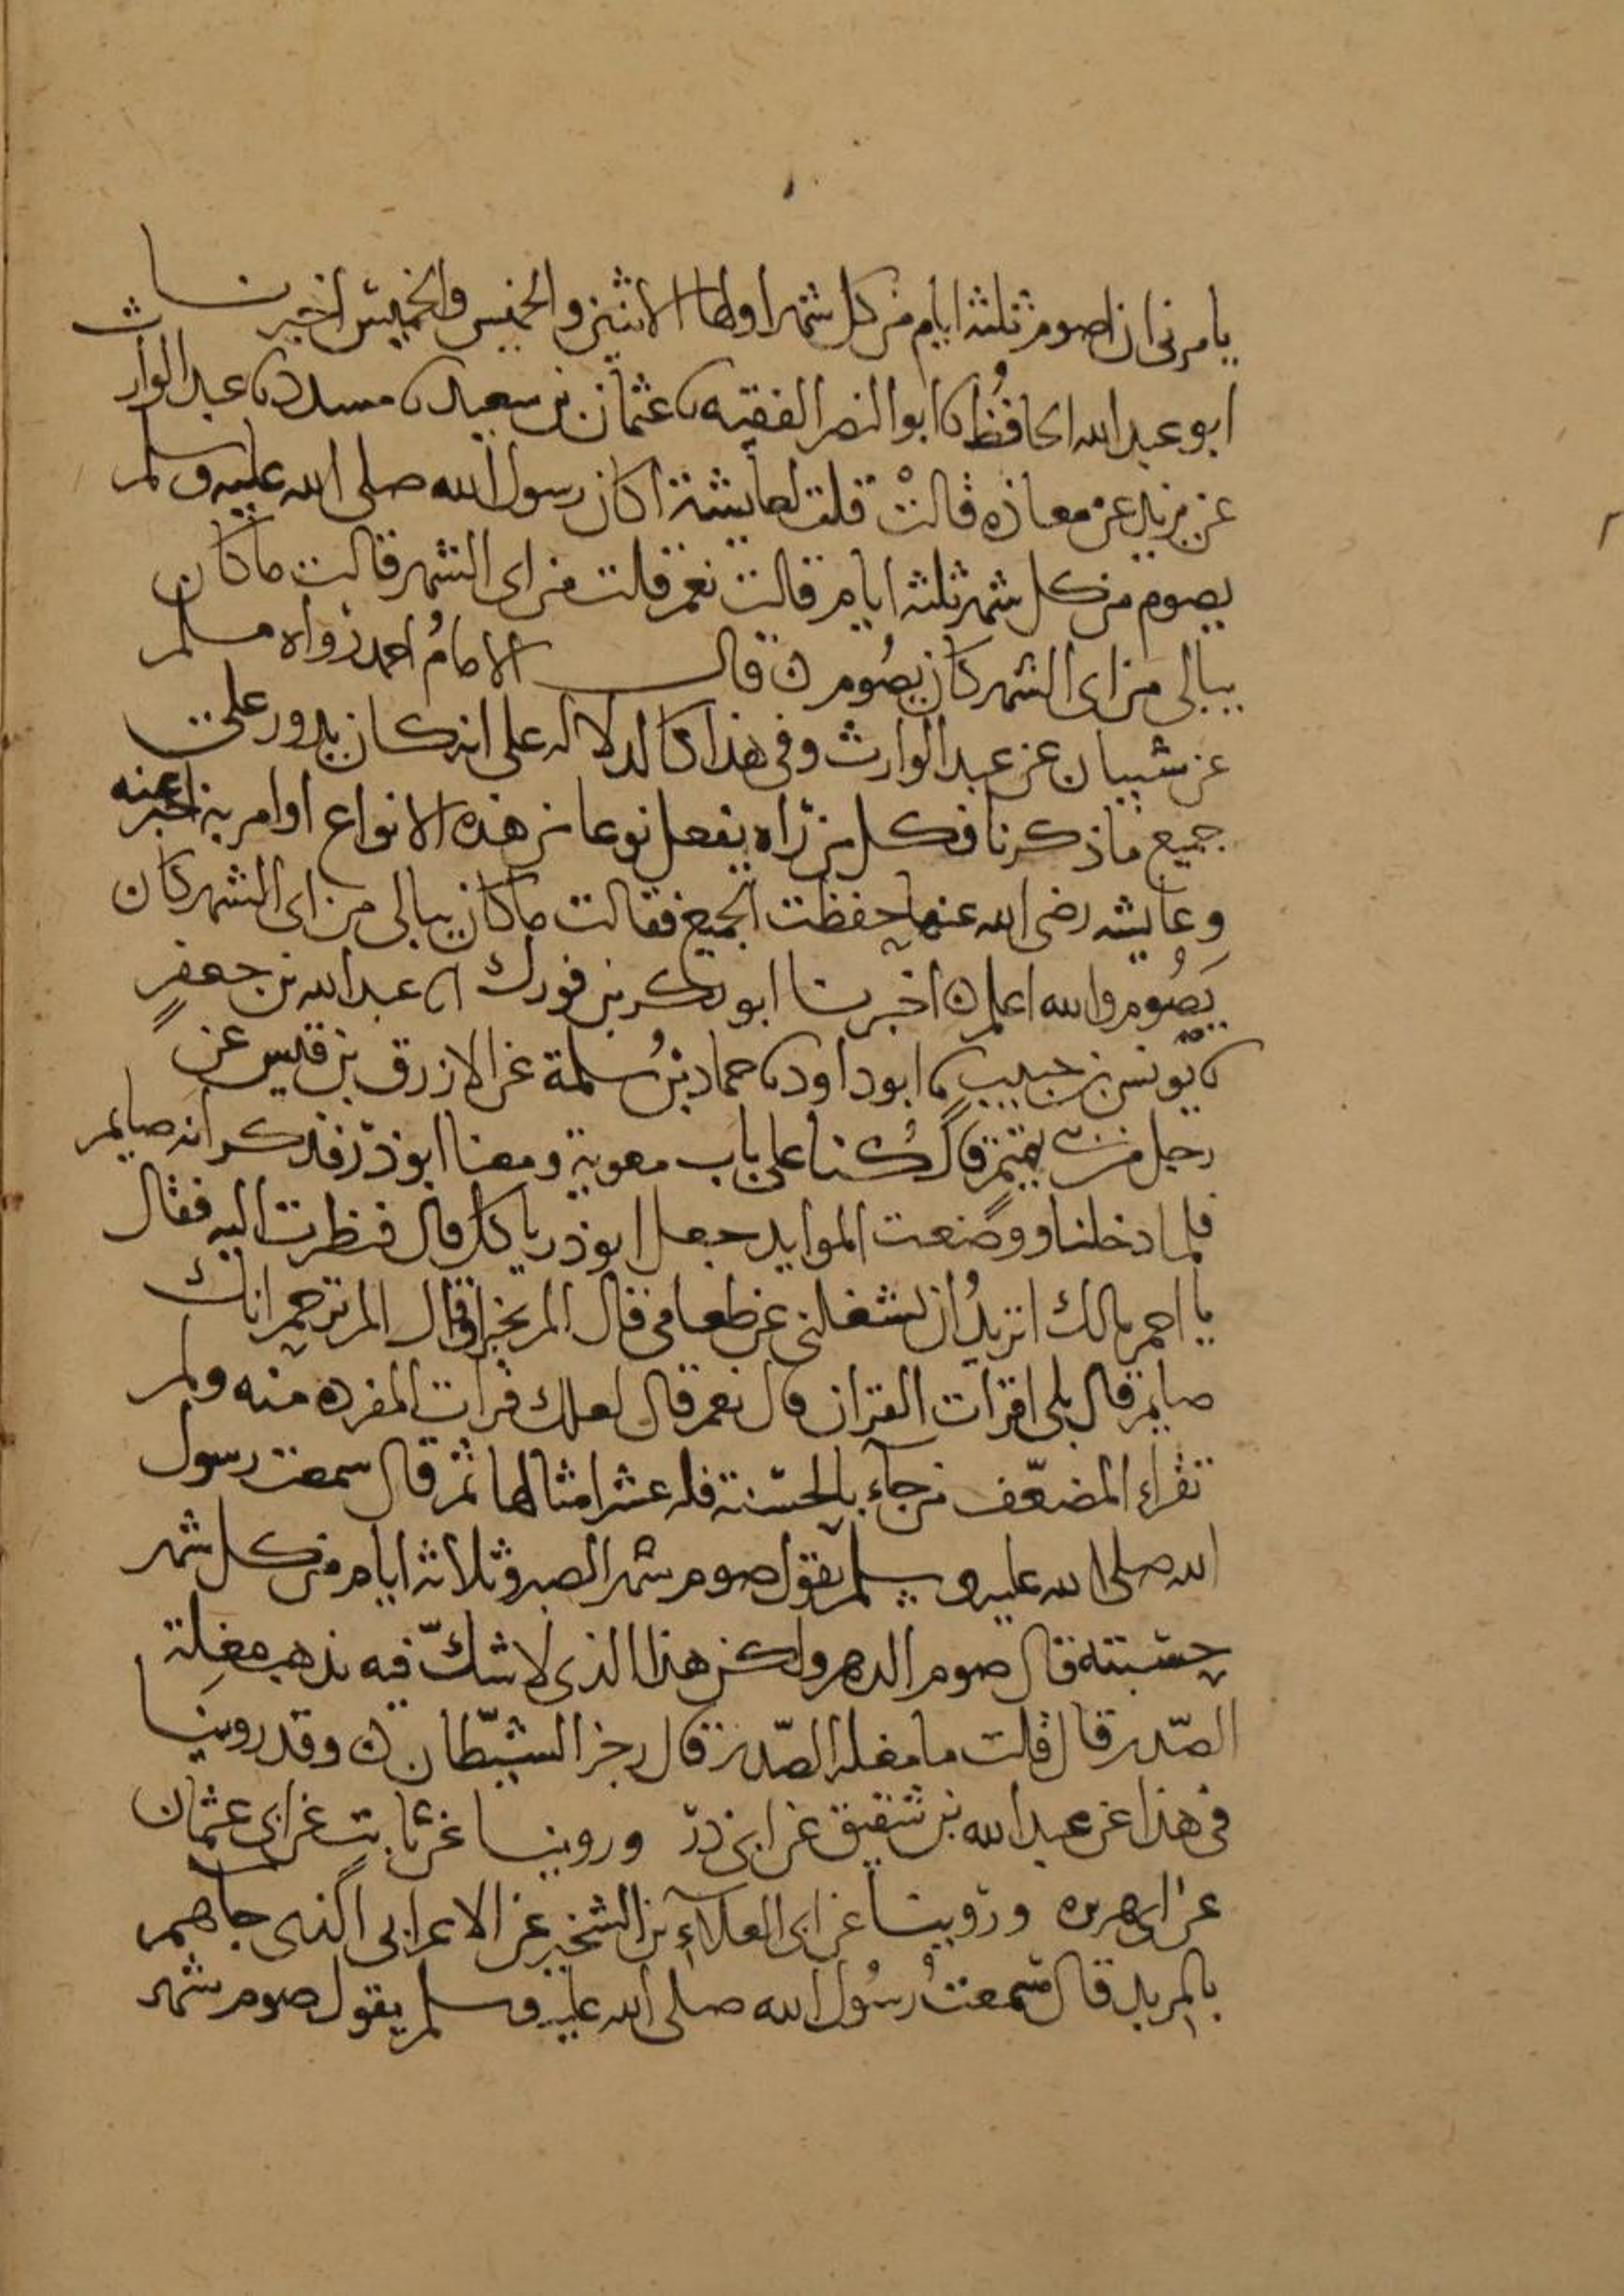 يامرنى ان اصوم ثلثة ايام من كل شهر اولها الاثنين والخميس والخميس اخبرنا
ابو عبد الله الحافظ نا ابو النضر الفقيه نا عثمان بن سعيد نا مسدد نا عبد الوارث
عن يزيد عن معاذه قالت قلت لعايشة اكان رسول الله صلى الله عليه وسلم
يصوم من كل شهر ثلثه ايام قالت نعم قلت من اى الشهر قالت ما كان
يبالى من اى الشهر كان يصوم ن قال الامام احمد رواه مسلم
عن شيبان عن عبد الوارث وفى هذا كالدلاله على انه كان يدور على
جميع ما ذكرنا فكل من راه يفعل نوعا من هذه الانواع او امر به اخبر عنه
وعايشه رضى الله عنها حفظت الجميع فقالت ما كان يبالى من اى الشهر كان
يصوم والله اعلم ن اخبرنا ابو بكر بن فورك انا عبد الله بن جعفر
نا يونس بن حبيب نا ابو داود نا حماد بن سلمة عن الازرق بن قيس عن
رجل من بنى تميم قال كنا على باب معوية ومعنا ابو ذر فذكر انه صايم
فلما دخلنا ووضعت الموايد جعل ابو ذر ياكل قال فنظرت اليه فقال
يا احمر مالك اتريد ان تشغلنى عن طعامى قال الم تخبر او قال الم تزعم انك
صايم قال بلى اقرات القران قال نعم قال لعلك قرات المفرد منه ولم
تقراء المضعف من جآء بالحسنة فله عشر امثالها ثم قال سمعت رسول
الله صلى الله عليه وسلم يقول صوم شهر الصبر وثلاثه ايام من كل شهر
حسبته قال صوم الدهر ولكن هذا الذى لا شك فيه يذهب مغلة
الصدر قال قلت ما مغله الصدر قال رجز الشيطان ن وقد روينا
فى هذا عن عبد الله بن شقيق عن ابى ذر وروينا عن ثابت عن ابى عثمان
عن ابى هريره وروينا عن ابى العلاء بن الشخير عن الاعرابى الذى جاهم
بالمربد قال سمعت رسول الله صلى الله عليه وسلم يقول صوم شهر